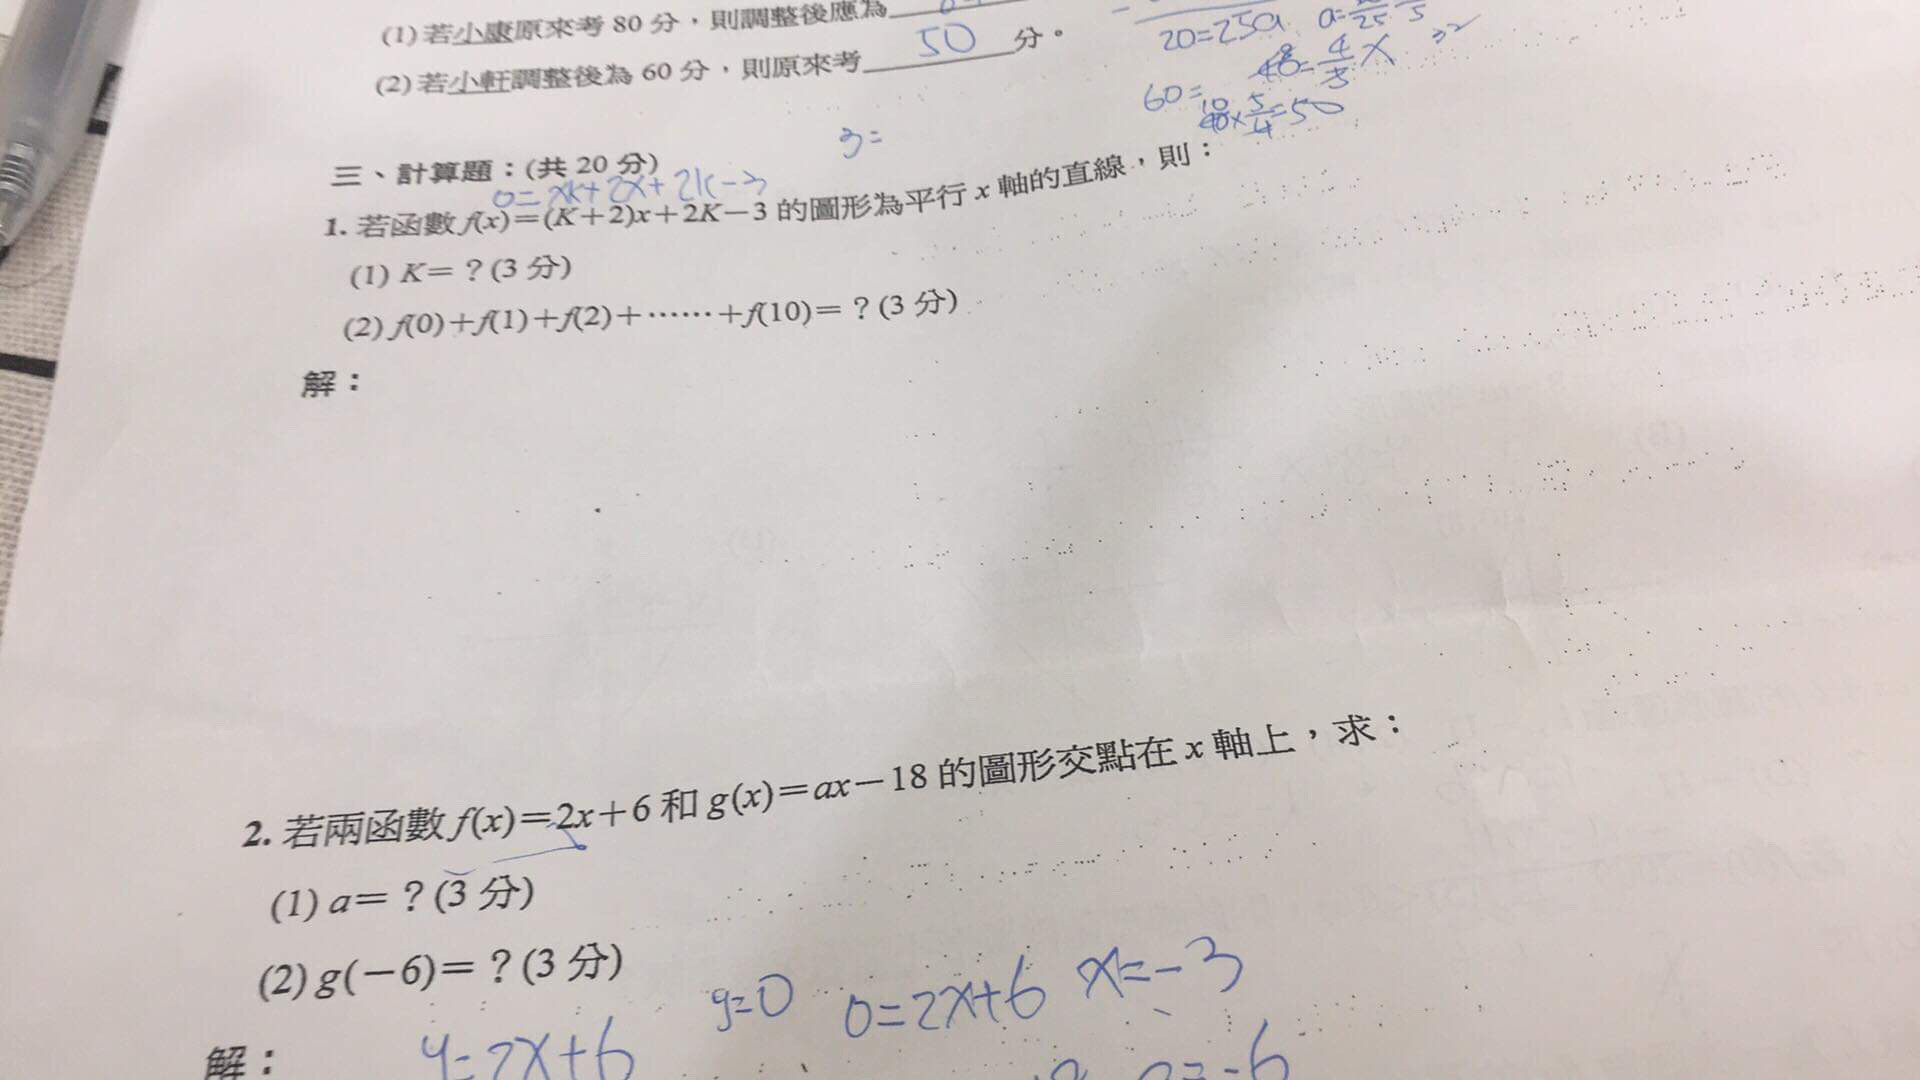 (1) 若小康原來考 80 分，則調整後應為
20=25a
(2) 若小軒調整後為 60 分，則原來考 50 分。
48=4/5 x
60=
40×5/4=50
3=
三、計算題：(共 20 分)
0=xk+2x+2k-3
1. 若函數 f(x)＝(K＋2)x＋2K－3 的圖形為平行 x 軸的直線，則：
(1) K＝？(3 分)
(2) f(0)＋f(1)＋f(2)＋……＋f(10)＝？(3 分)
解：
2. 若兩函數 f(x)＝2x＋6 和 g(x)＝ax－18 的圖形交點在 x 軸上，求：
(1) a＝？(3 分)
(2) g(－6)＝？(3 分)
y=0 0=2x+6 x=-3
解： y=2x+6